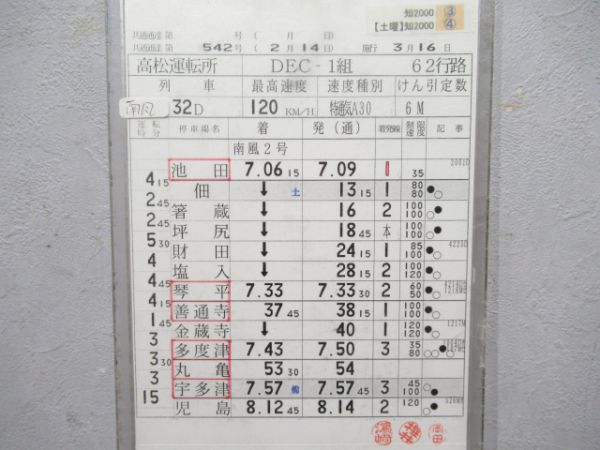 知2000 ③
【土曜】知2000 ④
共通(運)達 第 号 ( 月 日)
共通(運)達 第 542号 ( 2 月 14 日) 施行 3 月 16 日
高松運転所 DEC - 1組 62行路
列車 最高速度 速度種別 けん引定数
南風 32D 120 KM/H 特通気A30 6M
運転時分 停車場名 着 発(通) 着発線 制限速度 記事
南風2号
池田 7.06 15 7.09 1 35 2002D
4 15 佃 ↓ 土 13 15 1 80 80
2 45 箸蔵 ↓ 16 2 100 100
2 45 坪尻 ↓ 18 45 本 100 100
5 30 財田 ↓ 24 15 1 85 100
4 塩入 ↓ 28 15 2 100 100
4 45 琴平 7.33 7.33 30 2 60 50
4 15 善通寺 37 45 38 15 1 100 100
1 45 金蔵寺 ↓ 40 1 120 120 1217M
3 多度津 7.43 7.50 3 35 80
3 30 丸亀 53 30 54
3 宇多津 7.57 7.57 45 3 45 100
15 児島 8.12 45 8.14 2 120